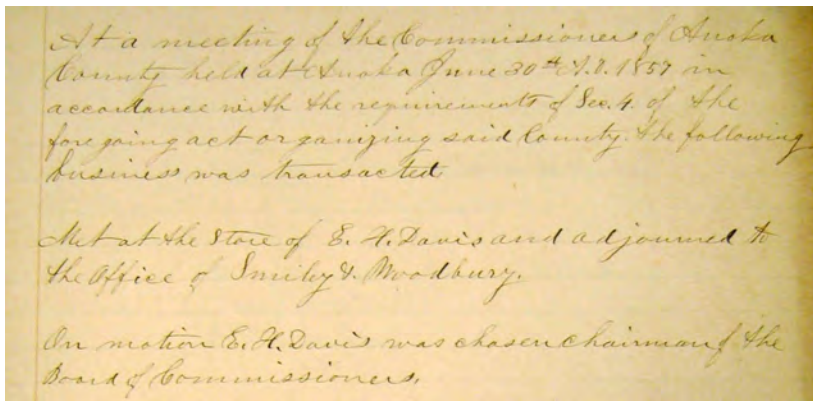 At a meeting of the Commissioners of Anoka
County held at Anoka June 30th A.D. 1857 in
accordance with the requirements of Sec. 4. of the
foregoing act organizing said County. the following
business was transacted
Met at the Store of E. H. Davis and adjourned to
the Office of Smiley & Woodbury.
On motion E. H. Davis was chosen chairman of the
Board of Commissioners.